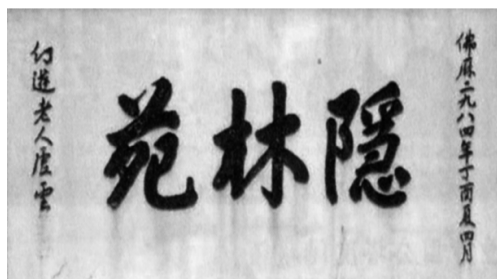 佛厤二九八四年丁酉夏四月
隱林苑
幻遊老人虛雲